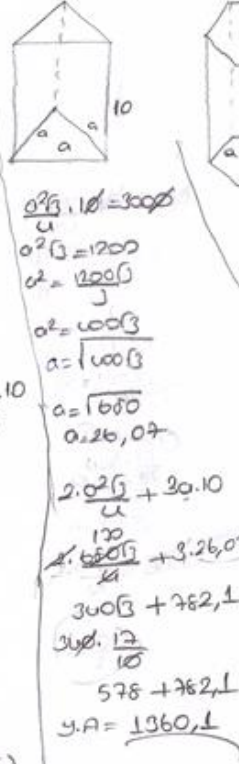 10
a
a
a
a
a²√3/4 . 10 = 3000
a²√3 = 1200
a² = 1200√3/3
a² = 400√3
a = √400√3
.10
a = √680
a = 26,07
2. a²√3/4 + 3a.10
170
2. 680√3/4 + 3.26,0
340√3 + 782,1
340. 17/10
578 + 782,1
y.A = 1360,1